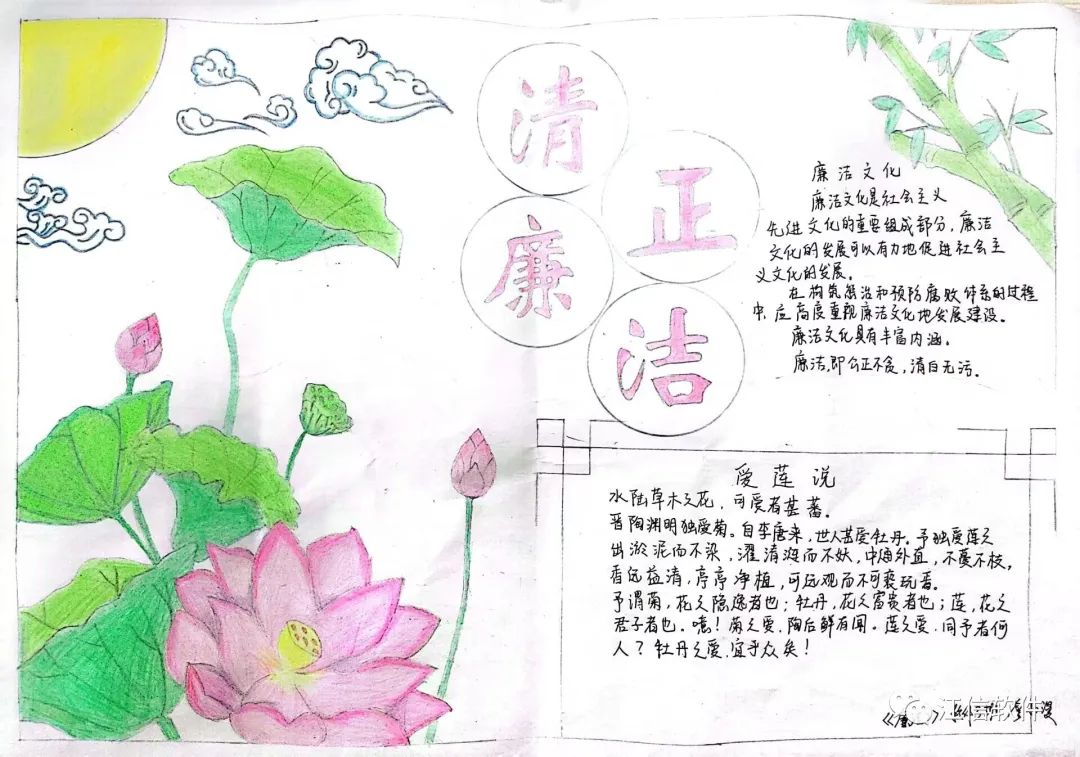 清
正
廉
洁
廉洁文化
廉洁文化是社会主义
先进文化的重要组成部分,廉洁
文化的发展可以有力地促进社会主
义文化的发展。
在构筑惩治和预防腐败体系的过程
中,应高度重视廉洁文化地发展建设。
廉洁文化具有丰富内涵。
廉洁,即公正不贪,清白无污。
爱莲说
水陆草木之花,可爱者甚蕃。
晋陶渊明独爱菊。自李唐来,世人甚爱牡丹。予独爱莲之
出淤泥而不染,濯清涟而不妖,中通外直,不蔓不枝,
香远益清,亭亭净植,可远观而不可亵玩焉。
予谓菊,花之隐逸者也;牡丹,花之富贵者也;莲,花之
君子者也。噫!菊之爱,陶后鲜有闻。莲之爱,同予者何
人?牡丹之爱,宜乎众矣!
江信软件